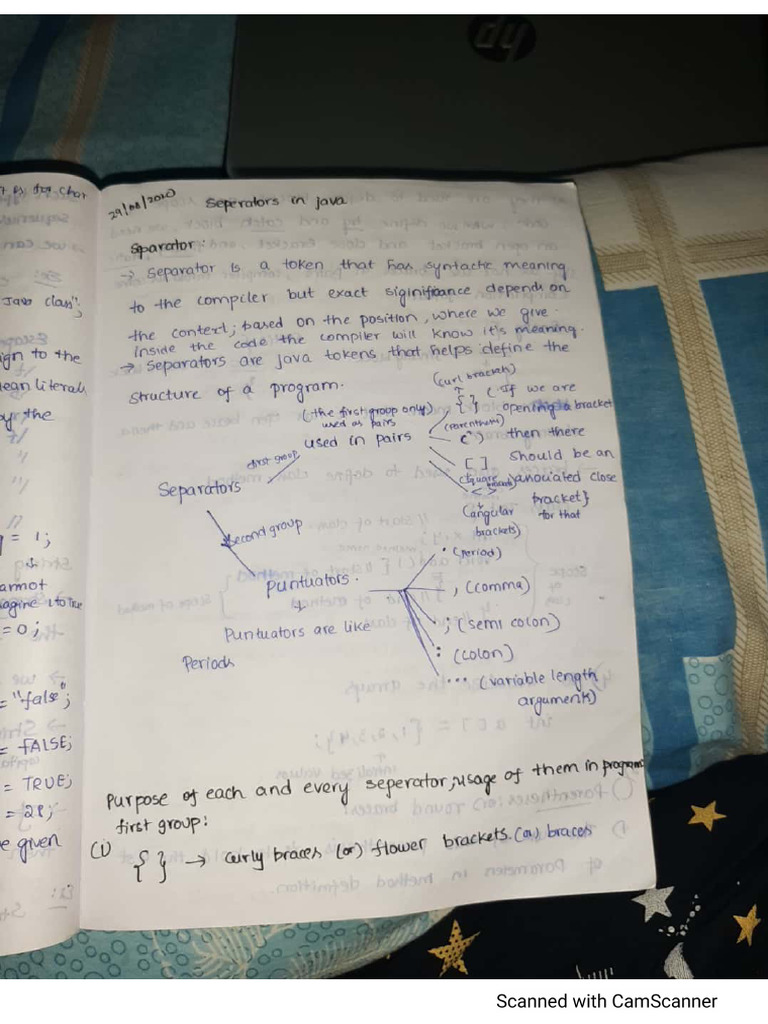 hp
t is for char
Java class";
ign to the
lean literals
by the
= 1;
annot
magine 1 to True
= 0;
= "false";
= FALSE;
= TRUE;
= 28;
e given
29/08/2020
Seperators in java
Sparator:
→ Separator is a token that has syntactic meaning
to the compiler but exact siginificance depends on
the context; based on the position, where we give
inside the code the compiler will know it's meaning.
→ Separators are java tokens that helps define the
structure of a program.
(curl brackets)
(the first group only)
used as pairs
{ } ( If we are
opening a bracket
(parenthesis)
first group
used in pairs
( ) then there
Should be an
[ ]
Separators
(square brackets)
associated close
< >
bracket}
for that
(angular
brackets)
Second group
. (Period)
Puntuators.
, (comma)
Puntuators are like
Periods
; (semi colon)
: (colon)
... (variable length
arguments)
Purpose of each and every seperator, usage of them in program
first group:
(i) { } → curly braces (or) flower brackets (or) braces
Scanned with CamScanner